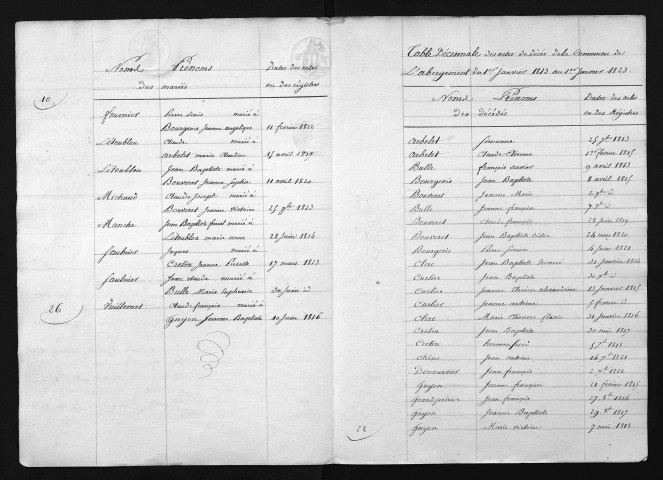 Noms Prénoms Dates des actes
des mariés ou des registres
10
Fournier Pierre Louis marié à
Bourgeois Jeanne angelique 11 février 1822
Létoublon Claude marié à
arbelet marie Claudine 15 avril
Létoublon Jean Baptiste marié à
Bouveret Jeanne Sophie 11 avril 1820
Michaud Claude Joseph marié à
Bouveret Jeanne victoire 25 9bre 1813
Manche Jean Baptiste marié à
Létoublon marie anne 28 Juin 1814
Saulnier Jaques marié à
Cretin Jeanne Pierrette 17 mars 1813
Saulnier Jean claude marié à
Bulle Marie Euphrasie 30 Juin id
26
Vuillemot Claude françois marié à
Guyon Jeanne Baptiste 10 Juin 1816
Table Décennale des actes de décès de la Commune de
L'abergement du 1er Janvier 1813 au 1er Janvier 1823
Noms Prénoms Dates des actes
des décédés ou des Registres
arbelet Simonne 25 7bre 1813
arbelet Claude Etienne 1er février 1815
Bulle françois xavier 9 avril 1813
Bourgeois Jean Baptiste 8 avril 1815
Bouveret Jeanne Marie 2 9bre id
Bulle Jeanne françoise 7 id
Bouveret Claude françois 28 Juin 1819
Bouveret Jean Baptiste victor 24 mars 1820
Bourgeois Pierre Simon 4 Juin 1820
Clerc Jean Baptiste 30 Janvier 1814
Curlier Jean Baptiste 30 id
Curlier Jeanne Thérèse alexandrine 13 Janvier 1815
Curlier Jeanne antoine 5 février id
Clerc Marie Eléonore flavie 31 Janvier 1816
Cretin Jean Baptiste 20 mai 1817
Cretin 5 1818
Chêne Jean antoine 14 1821
Descourvier Jean françois 2 1822
Guyon Jeanne françoise 21 février 1815
Grandpetrier Jean françois 27 8bre 1816
Guyon Jeanne Baptiste 29 8bre 1817
Guyon Marie victoire 7 mai 1818
22